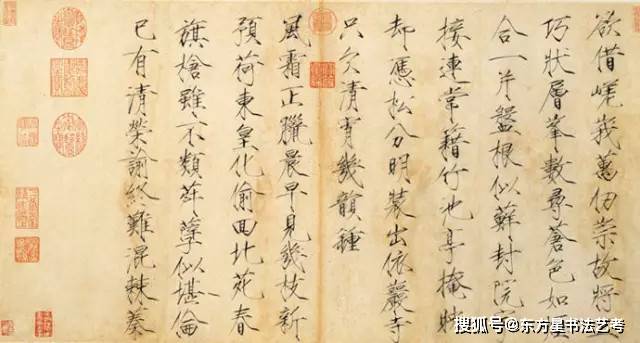 欲借嵯峨萬仞崇故將
巧狀層峯數尋蒼色如
合一片盤根似蘚封院
接連常藉竹池亭掩映
却憑松分明裝出依巖寺
只欠清宵幾韻鍾
風霜正臘晨早見幾枝新
預荷東皇化偷回北苑春
旗槍雖不類荈孽似堪倫
已有清榮諭終難混棘蓁
搜狐号@东方星书法艺考